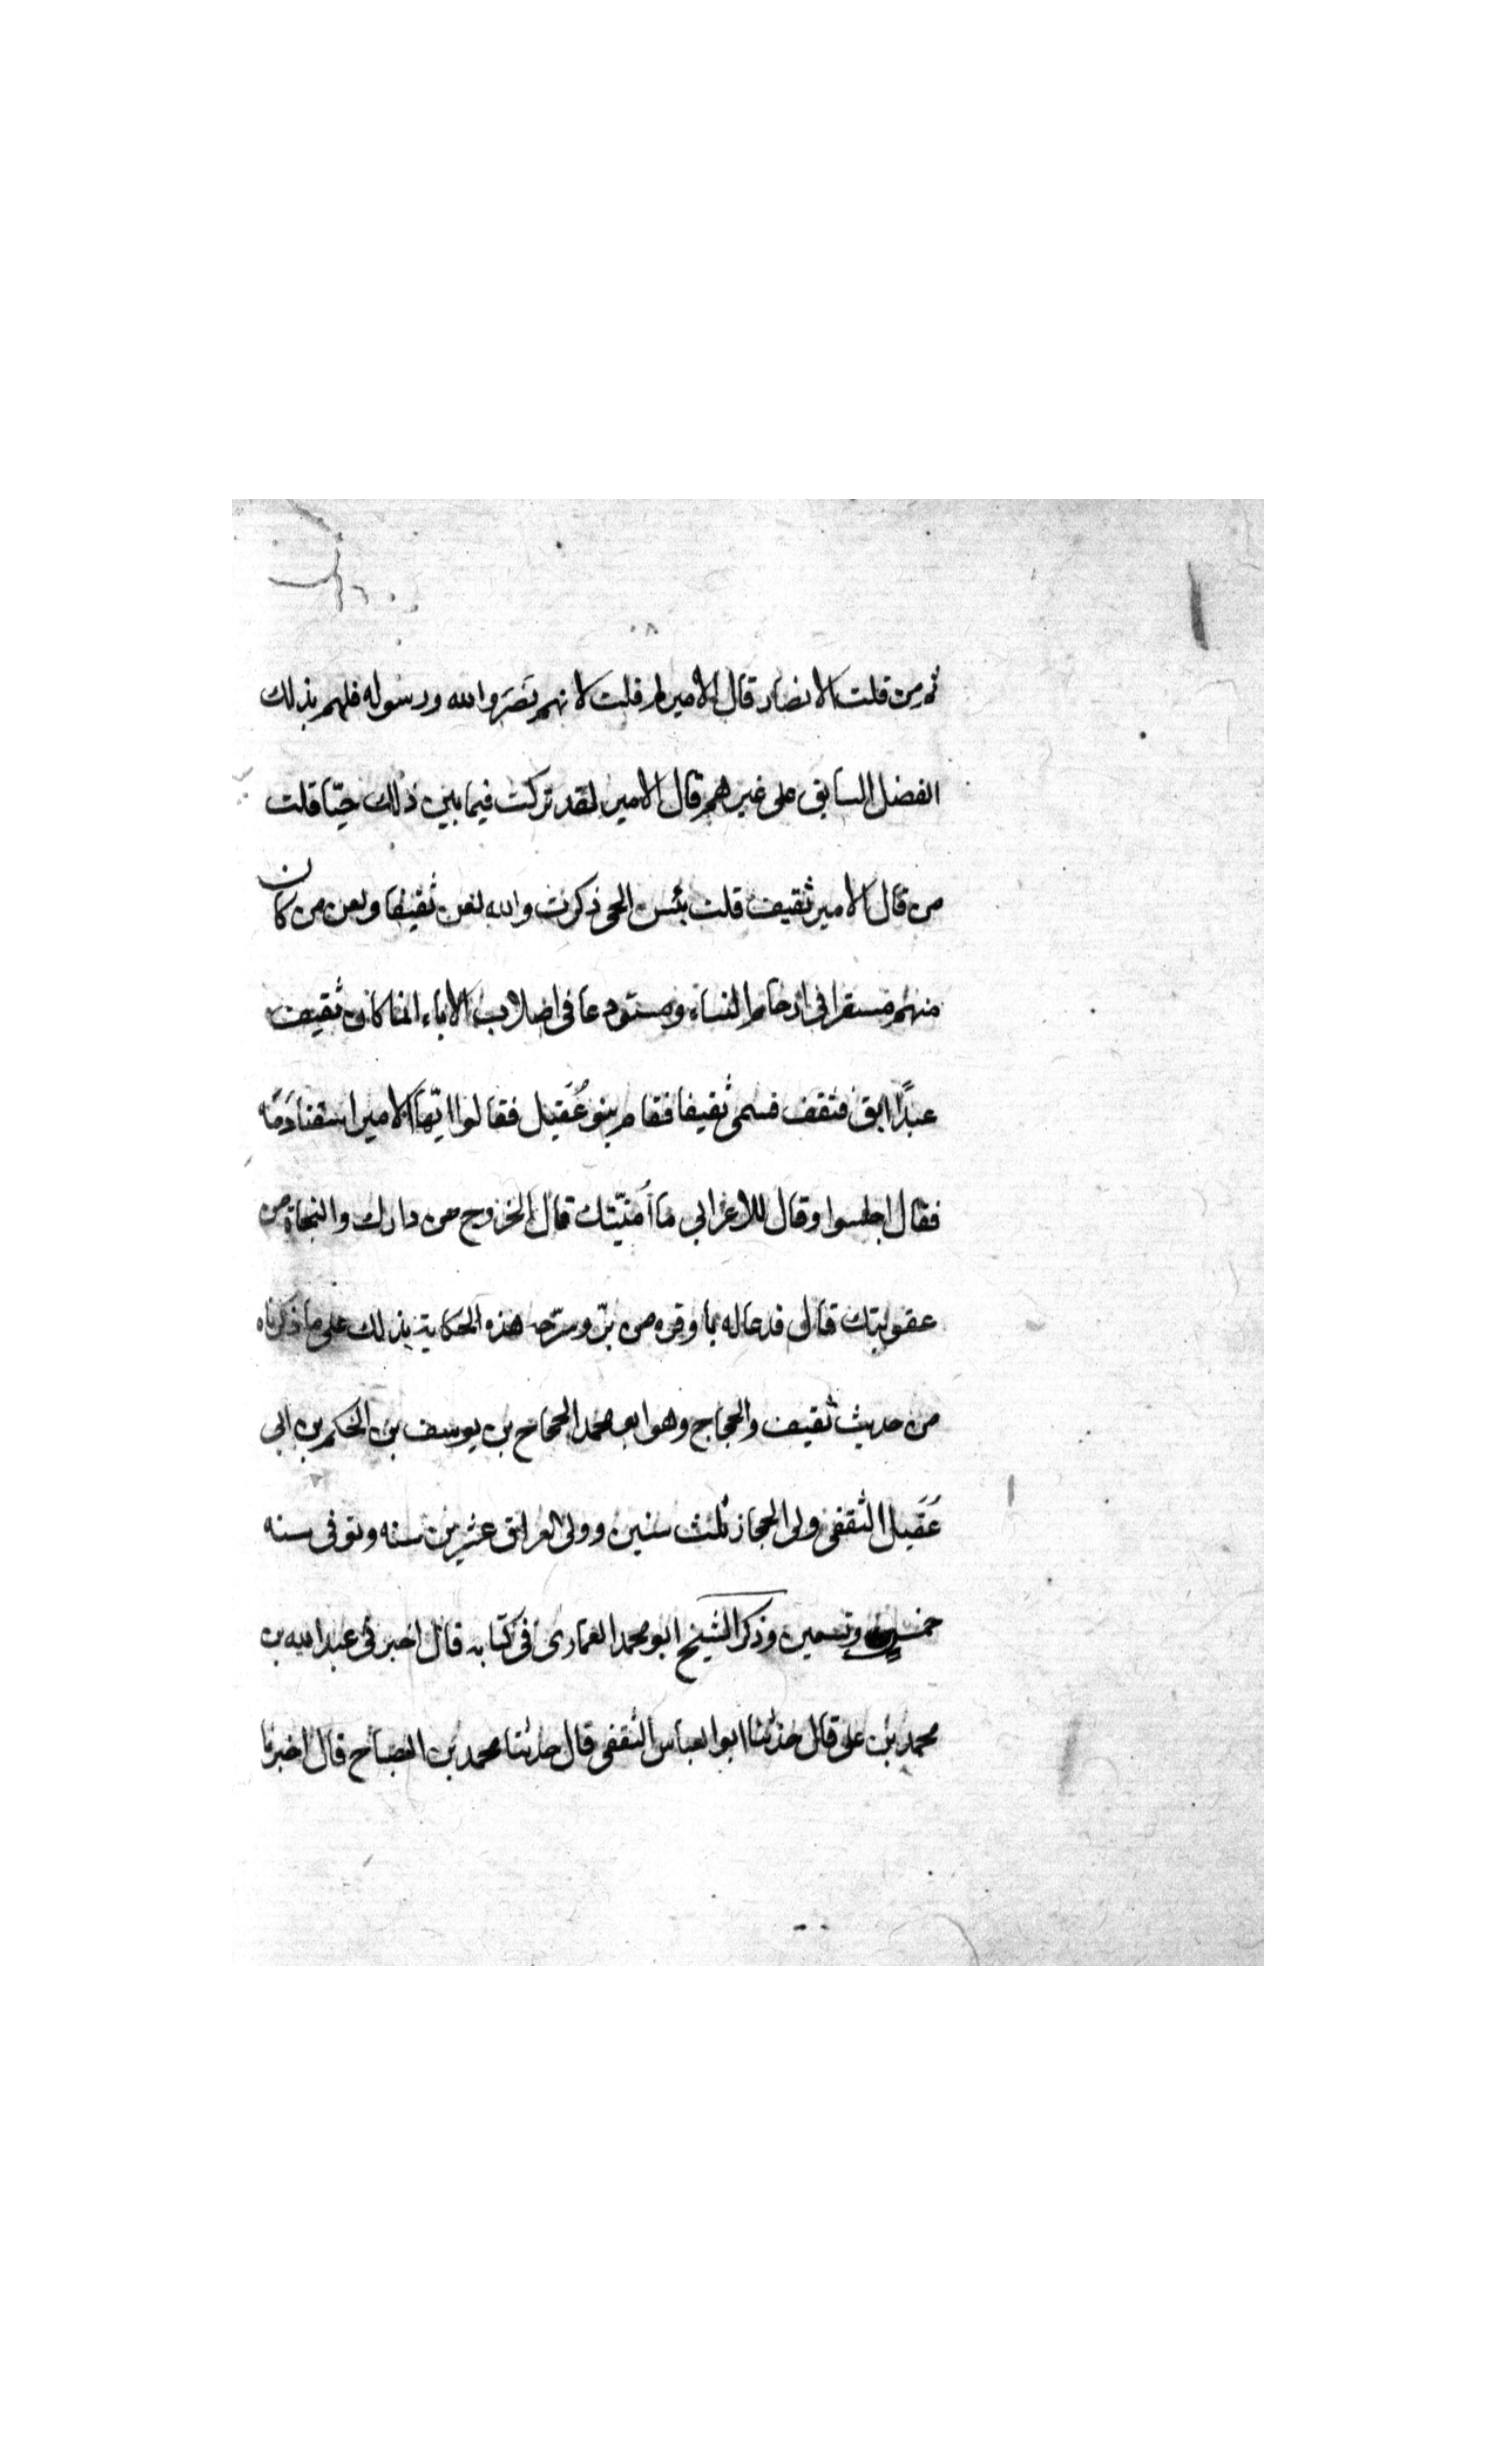 ثم من قلت الانصار قال الامير لم قلت لانهم نَصَرَوا الله ورسوله فلهم بذلك
الفضل السابق على غيرهم قال الامير لقد تركت فيما بين ذلك حيّا قلت
من قال الامير ثقيف قلت بئس الحى ذكرت والله لعن ثقيفا ولعن من كان
منهم مستقرا فى ارحام النساء ومستودعا فى اصلاب الاباء انما كان ثقيف
عبدًا ابق فثقف فسمى ثقيفا فقام بنو عُقَيل فقالوا ايّها الامير اسقنا دَمَه
فقال اجلسوا وقال للاعرابى ما اُمنيّتك قال الخروج من دارك والنجاة من
عقوبتك قال فدعا له بما وقره من برّ وسرّحه هذه الحكاية بذلك على ما ذكرناه
من حديث ثقيف والحجاج وهو ابو محمد الحجاج بن يوسف بن الحكم بن ابى
عَقَيل الثقفى ولى الحجاز ثلث سنين وولى العراق عشرين سنه وتوفى سنه
خمس وتسعين وذكر الشيخ ابو محمد العمارى فى كتابه قال اخبرنى عبد الله بن
محمد بن على قال حدثنا ابو العباس الثقفى قال حدثنا محمد بن الصبّاح قال اخبرنا